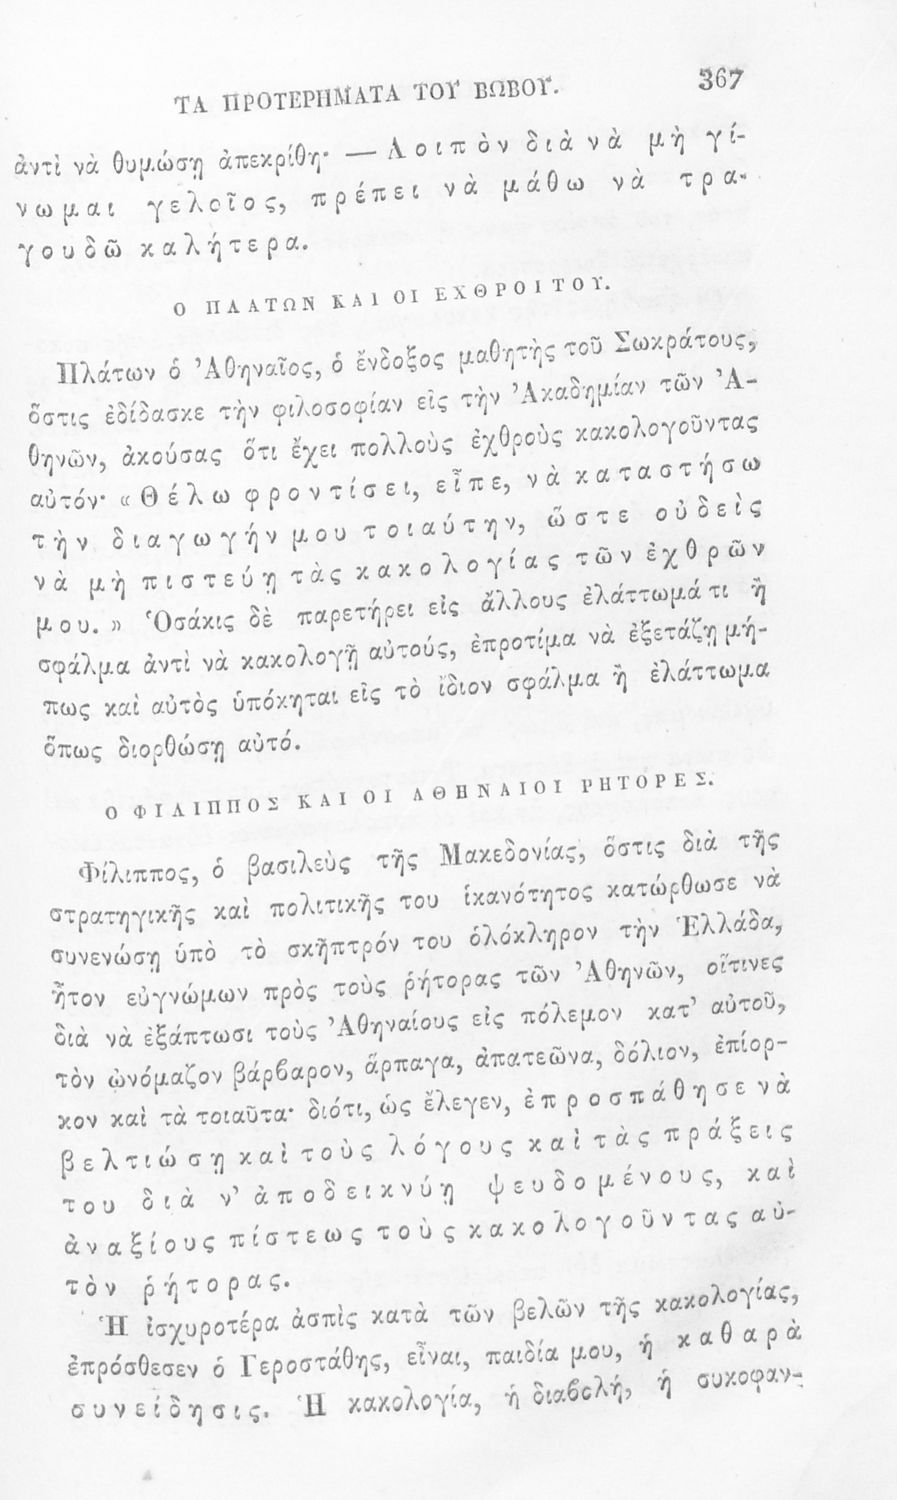 ΤΑ ΠΡΟΤΕΡΗΜΑΤΑ ΤΟΥ ΒΩΒΟΥ. 367
ἀντὶ νὰ θυμώσῃ ἀπεκρίθη· — Λοιπὸν διὰ νὰ μὴ γί-
νωμαι γελοῖος, πρέπει νὰ μάθω νὰ τρα-
γουδῶ καλήτερα.
Ο ΠΛΑΤΩΝ ΚΑΙ ΟΙ ΕΧΘΡΟΙ ΤΟΥ.
Πλάτων ὁ Ἀθηναῖος, ὁ ἔνδοξος μαθητὴς τοῦ Σωκράτους,
ὅστις ἐδίδασκε τὴν φιλοσοφίαν εἰς τὴν Ἀκαδημίαν τῶν Ἀ-
θηνῶν, ἀκούσας ὅτι ἔχει πολλοὺς ἐχθροὺς κακολογοῦντας
αὐτόν· «Θέλω φροντίσει, εἶπε, νὰ καταστήσω
τὴν διαγωγήν μου τοιαύτην, ὥστε οὐδεὶς
νὰ μὴ πιστεύῃ τὰς κακολογίας τῶν ἐχθρῶν
μου.» Ὁσάκις δὲ παρετήρει εἰς ἄλλους ἐλάττωμά τι ἢ
σφάλμα ἀντὶ νὰ κακολογῇ αὐτούς, ἐπροτίμα νὰ ἐξετάζῃ μή-
πως καὶ αὐτὸς ὑπόκηται εἰς τὸ ἴδιον σφάλμα ἢ ἐλάττωμα
ὅπως διορθώσῃ αὐτό.
Ο ΦΙΛΙΠΠΟΣ ΚΑΙ ΟΙ ΑΘΗΝΑΙΟΙ ΡΗΤΟΡΕΣ.
Φίλιππος, ὁ βασιλεὺς τῆς Μακεδονίας, ὅστις διὰ τῆς
στρατηγικῆς καὶ πολιτικῆς του ἱκανότητος κατώρθωσε νὰ
συνενώσῃ ὑπὸ τὸ σκῆπτρόν του ὁλόκληρον τὴν Ἑλλάδα,
ἦτον εὐγνώμων πρὸς τοὺς ῥήτορας τῶν Ἀθηνῶν, οἵτινες
διὰ νὰ ἐξάπτωσι τοὺς Ἀθηναίους εἰς πόλεμον κατ' αὐτοῦ,
τὸν ὠνόμαζον βάρβαρον, ἅρπαγα, ἀπατεῶνα, δόλιον, ἐπίορ-
κον καὶ τὰ τοιαῦτα· διότι, ὡς ἔλεγεν, ἐπροσπάθησε νὰ
βελτιώσῃ καὶ τοὺς λόγους καὶ τὰς πράξεις
του διὰ ν' ἀποδεικνύῃ ψευδομένους, καὶ
ἀναξίους πίστεως τοὺς κακολογοῦντας αὐ-
τὸν ῥήτορας.
Ἡ ἰσχυροτέρα ἀσπὶς κατὰ τῶν βελῶν τῆς κακολογίας,
ἐπρόσθεσεν ὁ Γεροστάθης, εἶναι, παιδία μου, ἡ καθαρὰ
συνείδησις. Ἡ κακολογία, ἡ διαβολή, ἡ συκοφαν-